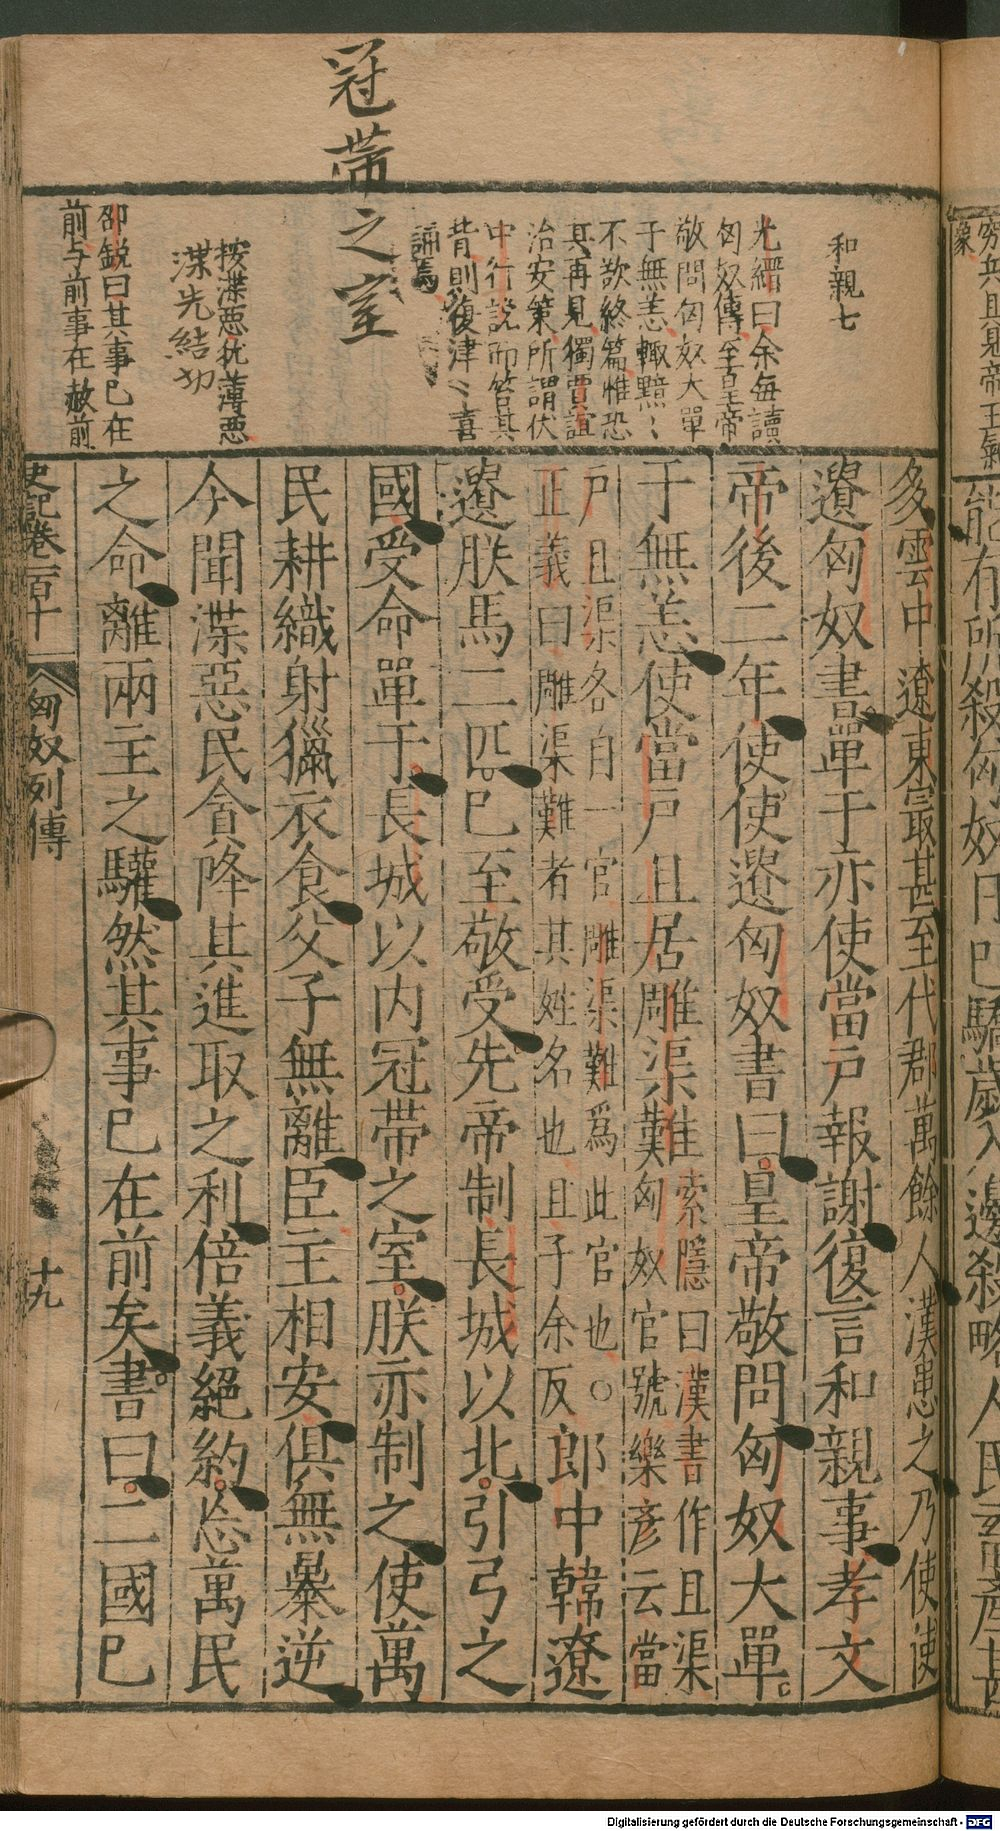 冠帶之室
和親七
光縉曰余每讀
匈奴傳至皇帝
敬問匈奴大單
于無恙輒黯〻
不欲終篇惟恐
其再見獨賈誼
治安策所謂伏
中行說而笞其
背則復津〻喜
誦焉
按渫惡犹薄惡
渫先結切
邵銳曰其事已在
前与前事在赦前
多雲中遼東最甚至代郡萬餘人漢患之乃使使
遺匈奴書單于亦使當戶報謝復言和親事孝文
帝後二年使使遺匈奴書曰皇帝敬問匈奴大單
于無恙使當戶且居雕渠難匈奴官號樂彥云當
索隱曰漢書作且渠
戶且渠各自一官雕渠難爲此官也○
正義曰雕渠難者其姓名也且子余反
郎中韓遼
遺朕馬二匹已至敬受先帝制長城以北引弓之
國受命單于長城以內冠帶之室朕亦制之使萬
民耕織射獵衣食父子無離臣主相安俱無暴逆
今聞渫惡民貪降其進取之利倍義絕約忘萬民
之命離兩主之驩然其事已在前矣書曰二國已
史記卷百十
匈奴列傳
十九
窮兵且見帝王氣
象
能有所殺匈奴日已驕歲入邊殺略人民畜產甚
Digitalisierung gefördert durch die Deutsche Forschungsgemeinschaft - DFG